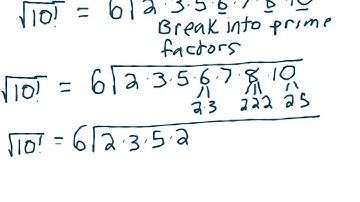 √10! = 6√2·3·5·6·7·8·10
Break into prime
factors
√10! = 6√2·3·5·6·7·8·10
2·3 222 25
√10! = 6√2·3·5·2